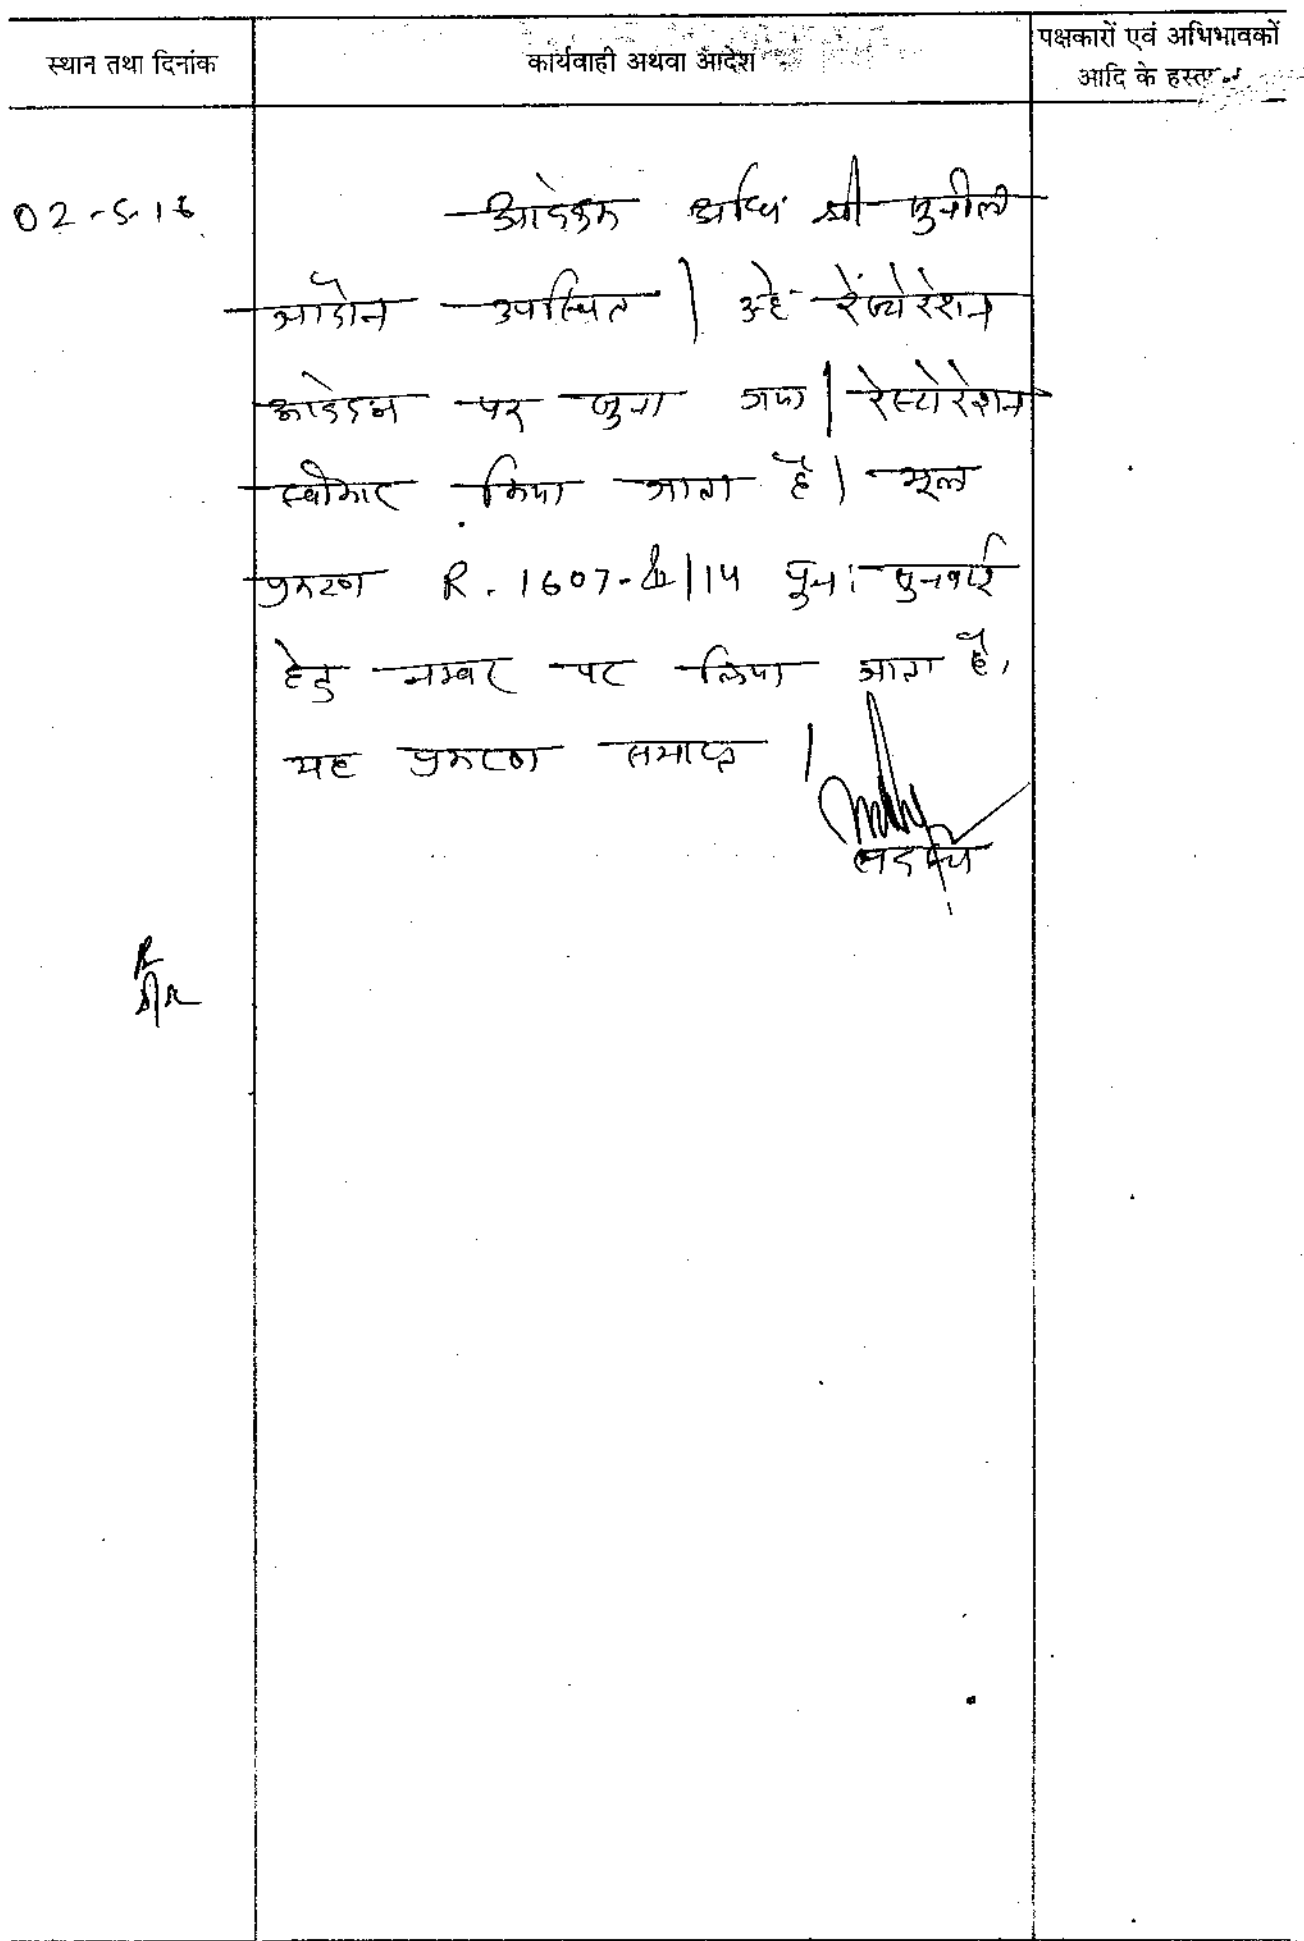 स्थान तथा दिनांक
कार्यवाही अथवा आदेश
पक्षकारों एवं अभिभावकों
आदि के
02-5-16
आवेदक अधि. श्री सुनील
जादौन उपस्थित | उन्हें रेस्टोरेशन
आवेदन पर सुना गया | रेस्टोरेशन
स्वीकार किया जाता है | मूल
प्रकरण R. 1607- |14 पुनः सुनवाई
हेतु नम्बर पर लिया जाता है,
यह प्रकरण समाप्त |
सदस्य